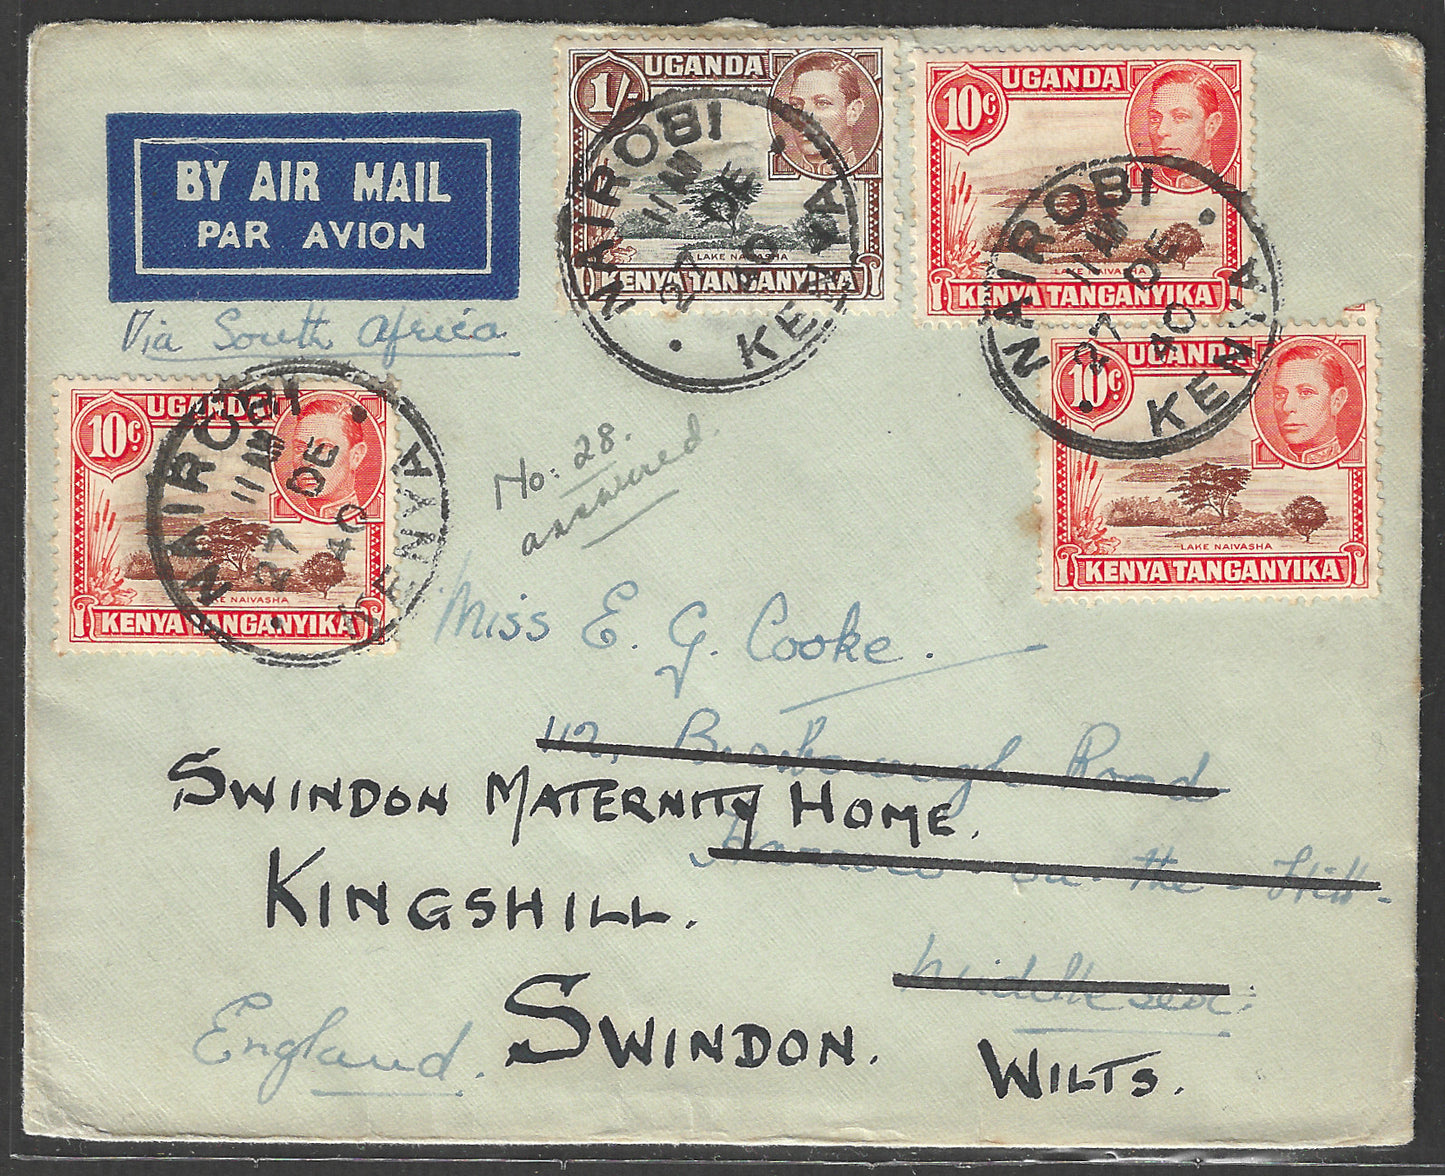 BY AIR MAIL
PAR AVION
Via South Africa
1/-
UGANDA
LAKE NAIVASHA
KENYA TANGANYIKA
NAIROBI
11 AM
27 DE
40
KENYA
10c
UGANDA
LAKE NAIVASHA
KENYA TANGANYIKA
NAIROBI
11 AM
27 DE
40
KENYA
10c
UGANDA
LAKE NAIVASHA
KENYA TANGANYIKA
10c
UGANDA
LAKE NAIVASHA
KENYA TANGANYIKA
NAIROBI
11 AM
27 DE
40
KENYA
No: 28.
answered.
Miss E. G. Cooke.
112, Road
SWINDON MATERNITY HOME.
Harrow on the Hill
KINGSHILL.
Middlesex.
England.
SWINDON.
WILTS.